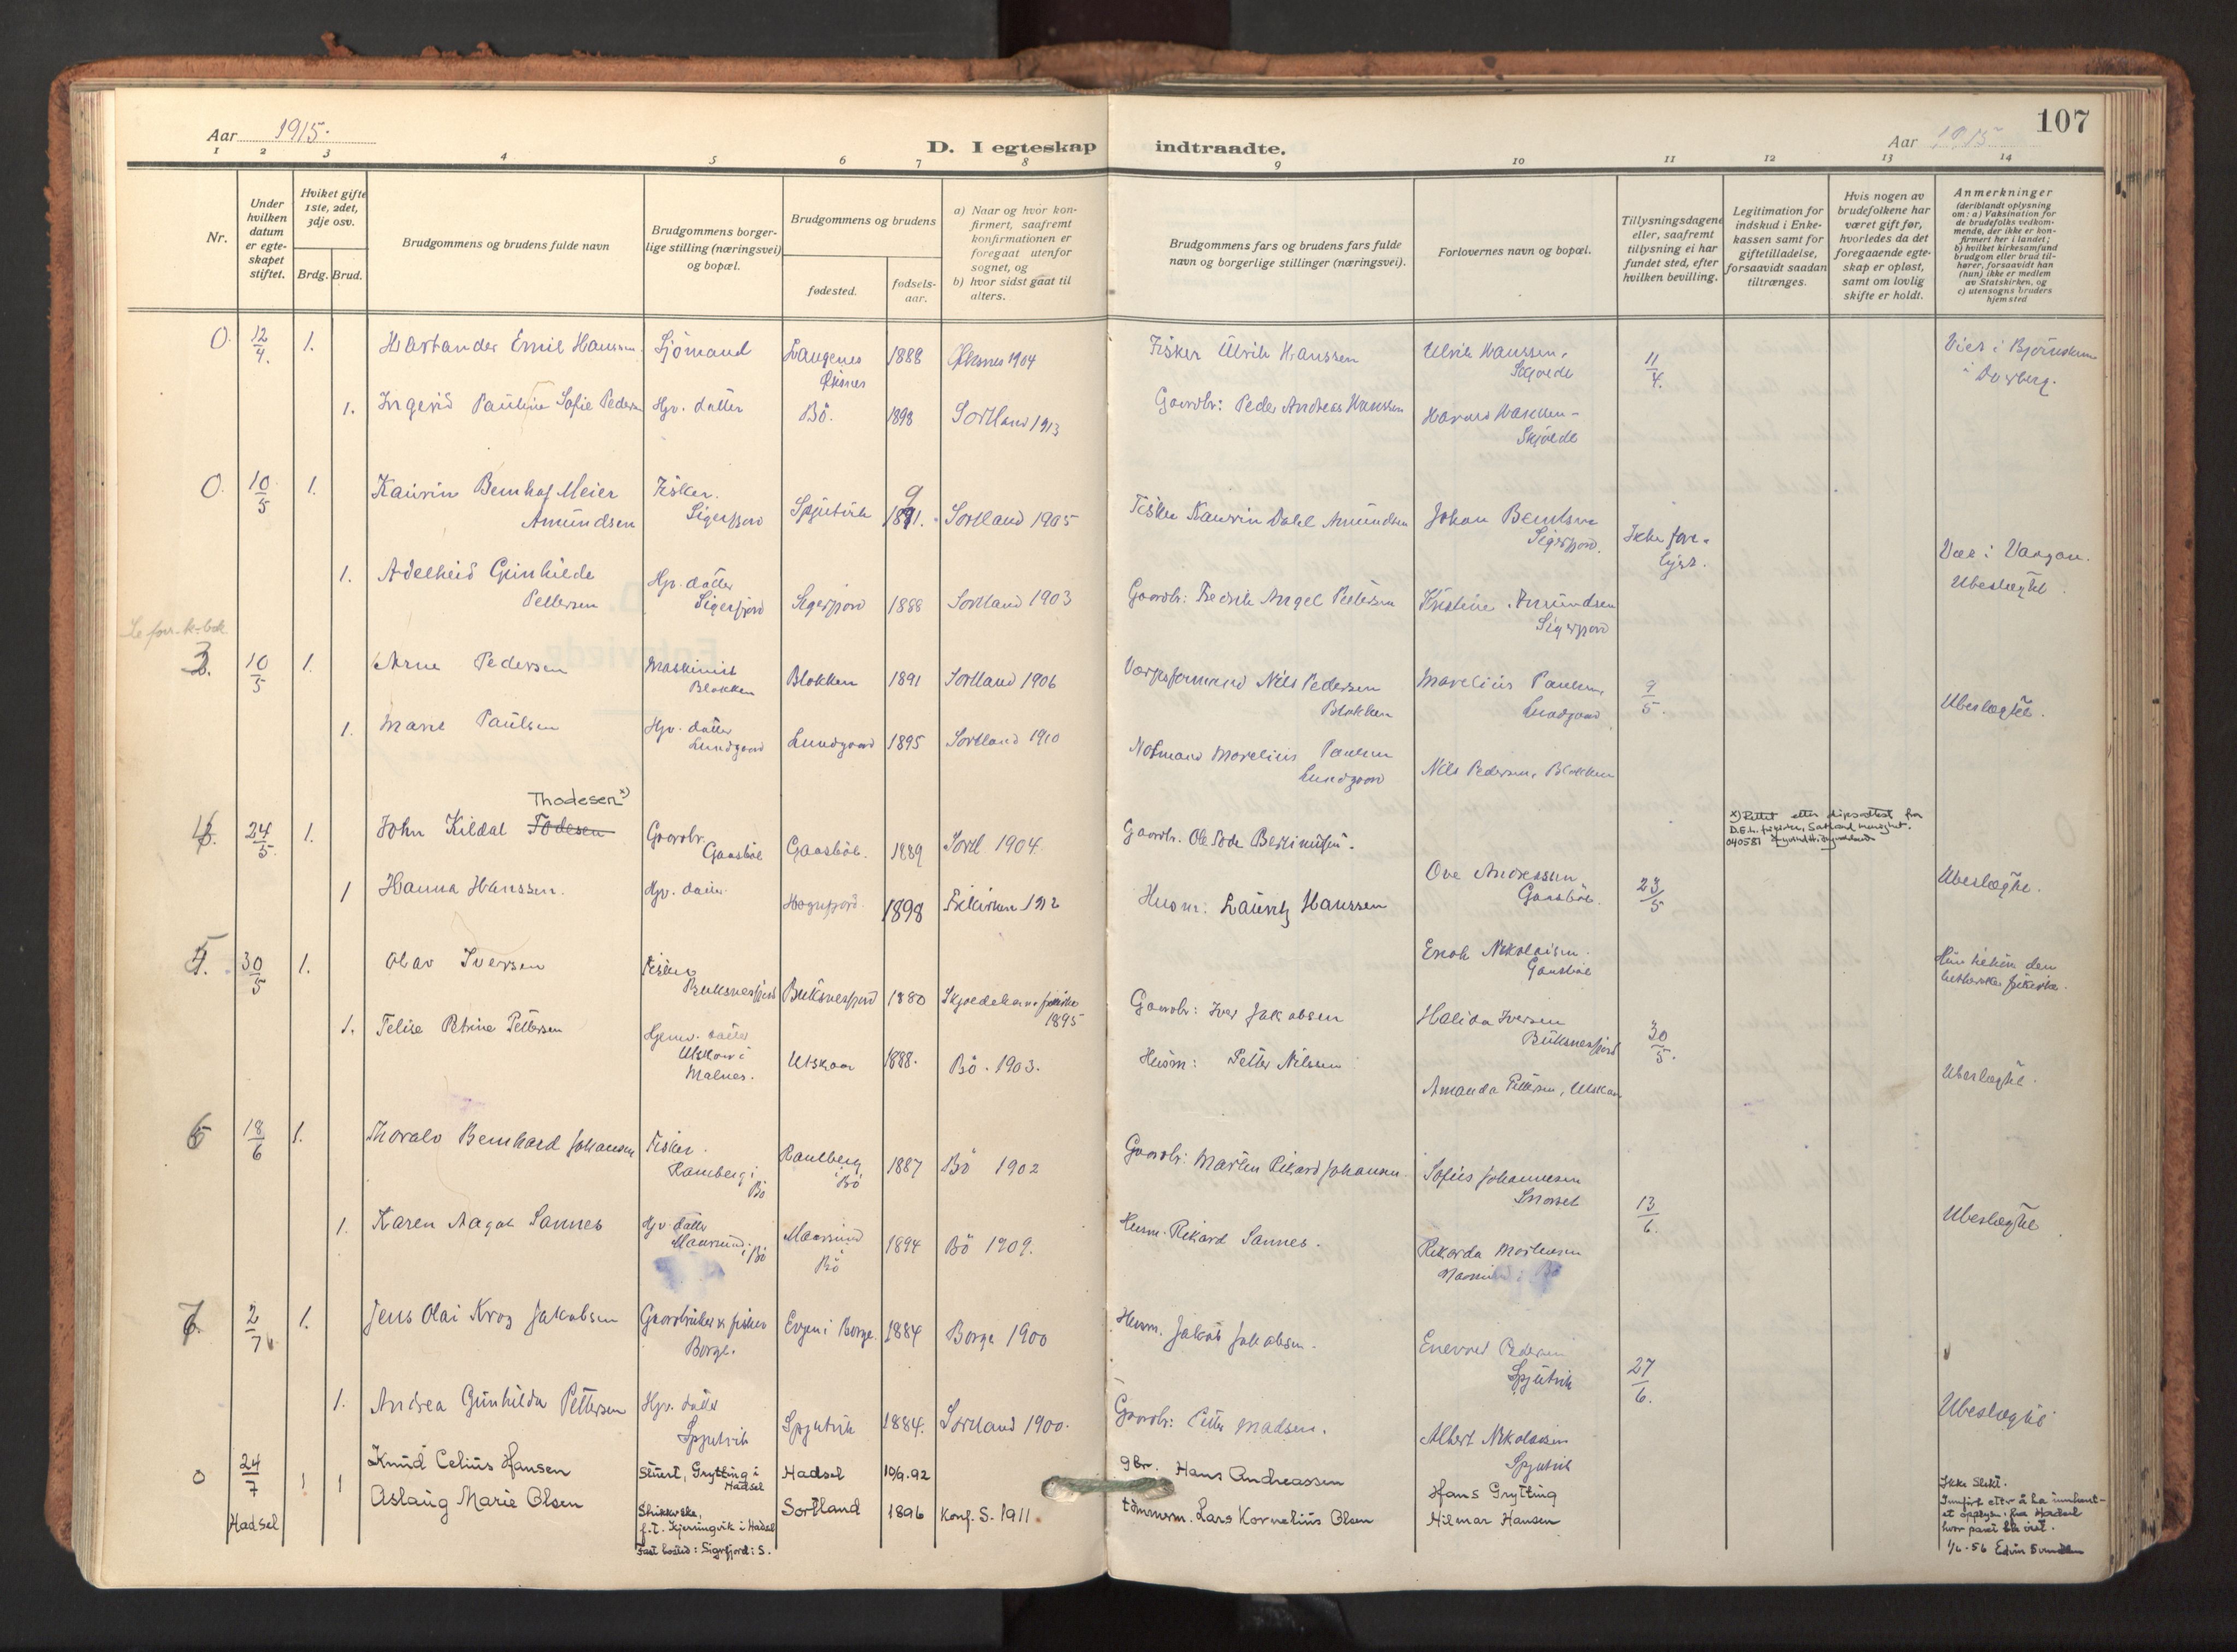 107
Aar 1915.
D. I egteskap indtraadte.
Aar 1915
1 2 3 4 5 6 7 8 9 10 11 12 13 14
Nr.
Under hvilken datum er egteskapet stiftet.
Hviket gifte 1ste, 2det, 3dje osv.
Brdg. Brud.
Brudgommens og brudens fulde navn
Brudgommens borgerlige stilling (næringsvei) og bopæl.
Brudgommens og brudens
fødested.
fødselsaar.
a) Naar og hvor konfirmert, saafremt konfirmationen er foregaat utenfor sognet, og
b) hvor sidst gaat til alters.
Brudgommens fars og brudens fars fulde navn og borgerlige stillinger (næringsvei).
Forlovernes navn og bopæl.
Tillysningsdagene eller, saafremt tillysning ei har fundet sted, efter hvilken bevilling.
Legitimation for indskud i Enkekassen samt for giftetilladelse, forsaavidt saadan tiltrænges.
Hvis nogen av brudefolkene har været gift før, hvorledes da det foregaaende egteskap er opløst, samt om lovlig skifte er holdt.
Anmerkninger (deriblandt oplysning om: a) Vaksination for de brudefolks vedkommende, der ikke er konfirmert her i landet; b) hvilket kirkesamfund brudgom eller brud tilhører, forsaavidt han (hun) ikke er medlem av Statskirken, og c) utensogns bruders hjemsted
0. 12/4. 1. Emil Hanssen Sjömand Langenes Øksnes 1888 Øksnes 1904 Fisker Ulrik Hanssen Ulrik Hanssen, 11/4.
1. Ingerid Pauline Sofie Pedersen Hjv. datter Bö. 1898 Sortland 1913 Gaardbr: Peder Andreas Hanssen
0. 10/5 1. Kaurin Bernhof Meier Amundsen Fisker. Sigerfjord Spjutvik 1891. Sortland 1905 Fisker Kaurin Dahl Amundsen Johan Bentsen Sigerfjord. Ikke forelyst.
1. Adelheid Gunhilde Pettersen Hjv. datter Sigerfjord Sigerfjord 1888 Sortland 1903 Gaardbr: Fredrik Angel Pettersen Kristine Amundsen Sigerfjord Ubeslegtet.
3. 10/5 1. Arne Pedersen Maskinist Blokken Blokken 1891 Sortland 1906 Nils Pedersen Blokken Marelius Paulsen, Lundgaard 9/5.
1. Marie Paulsen Hjv. datter Lundgaard Lundgaard 1895 Sortland 1910 Marelius Paulsen Lundgaard Nils Pedersen, Blokken Ubeslegtet.
Thodesen x)
4. 24/5. 1. John Kildal Todesen Gaardbr. Gaasböl Gaasböl. 1889 Sortl. 1904. Gaardbr. Ove Andreassen Gaasböl. 23/5
x) Rettet etter
040581
1 Hanna Hanssen. Hjv. datter 1898 Frikirken 1912 Husm: Lauritz Hanssen Enok Nikolaisen. Gaasböl Ubeslegtet.
5. 30/5 1. Olav Iversen Fisker Buksnesfjord Buksnesfjord 1880 1895 Gaardbr: Iver Jakobsen Halida Iversen Buksnesfjord 30/5.
1. Petrine Pettersen datter Malnes. Utskaar 1888. Bö. 1903. Husm: Petter Nilssen Amanda Pettersen, Ubeslegtet.
6 18/6 1. Thoralv Bernhard Johansen Fisker. Ramberg i Bö Ramberg i Bö 1887 Bö 1902 Gaardbr: Martin Rikard Johansen. Sofus Johannesen 13/6.
1. Karen Aagot Sannes Hjv. datter i Bö Bö 1894 Bö 1909. Husm. Rikard Sannes. Rikarda Mortensen Ubeslegtet
7. 2/7 1. Jens Olai Krog Jakobsen Gaardbruker & fisker Borge. i Borge. 1884 Borge 1900 Husm. Jakob Jakobsen. Enevold Pedersen Spjutvik 27/6.
1. Andrea Gunhilda Pettersen Hjv. datter Spjutvik Spjutvik 1884. Sortland 1900. Gaardbr: Petter Madsen. Albert Nikolaisen Spjutvik Ubeslegtet
0 24/7 1 1 Knud Celius Hansen Stuert, Grytting i Hadsel Hadsel 10/9.92 gbr. Hans Andreassen Hans Grytting Ikke slekt.
Hadsel Aslaug Marie Olsen f.t. Kjerringvik i Hadsel Fast bosted: Sigerfjord i S. Sortland 1896 Konf. S. 1911. tömmerm. Lars Kornelius Olsen Hilmar Hansen
Innfört etter å ha innhentet opplysn. fra Hadsel hvor paret ble viet.
1/6-56